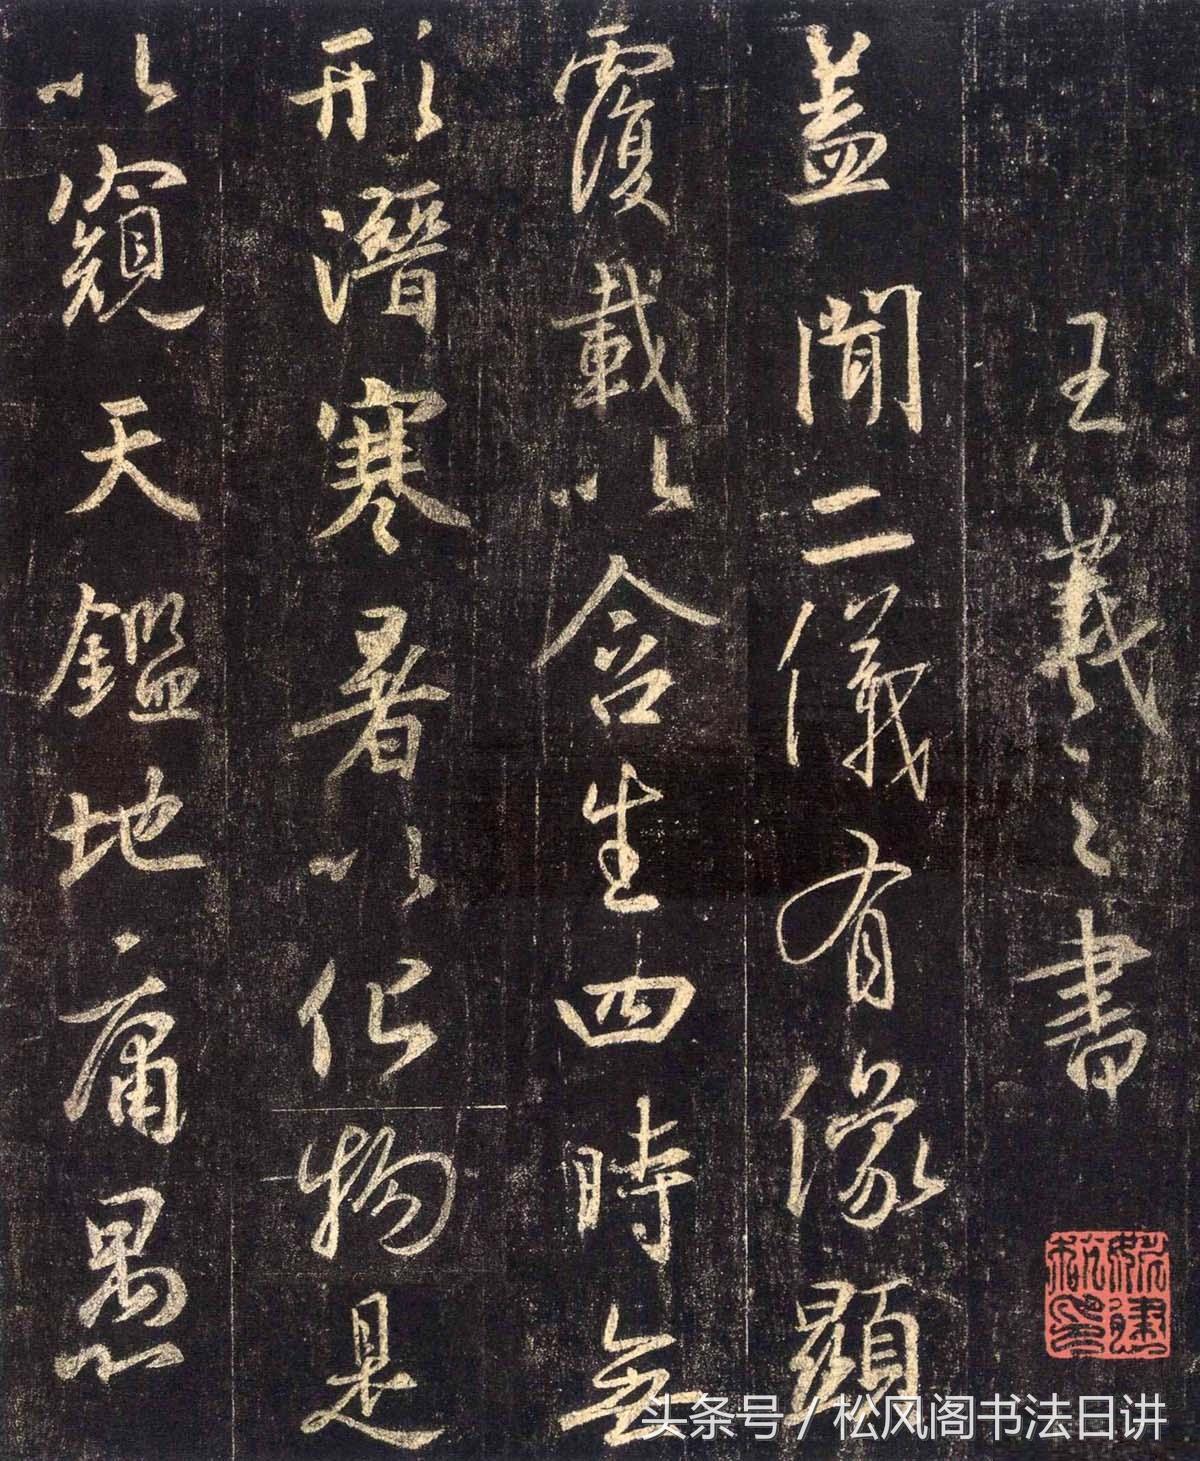 王羲之書
蓋聞二儀有像顯
覆載以含生四時無
形潛寒暑以化物是
以窺天鑑地庸愚
头条号 / 松风阁书法日讲